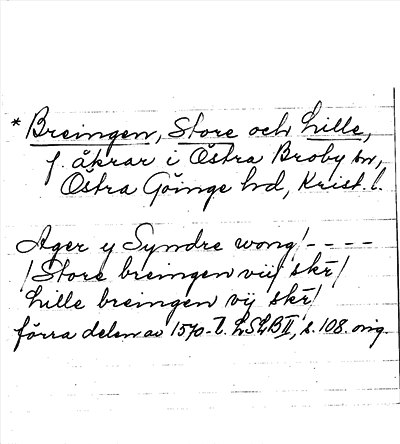 * Breingen, Store och Lille,
f. åkrar i Östra Broby sn,
Östra Göinge hd, Krist. l.
Ager y Syndre wong/----
/Store breingen viij skr̄/
Lille breingen vij skr̄/
förra delen av 1570-t. LSLB II, s. 108. orig.